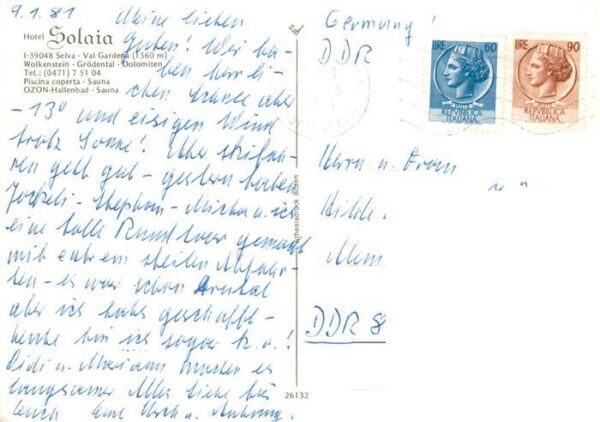 9.1.81 Meine lieben
Hotel Solaia
I-39048 Selva - Val Gardena (1560 m)
Wolkenstein - Grödental - Dolomiten
Tel.: (0471) 7 51 04
Piscina coperta - Sauna
OZON-Hallenbad - Sauna
Guten! Wir ha-
ben herrli-
chen Schnee aber
-13° und eisigen Wind
trotz Sonne! Aber skifah-
ren geht gut - gestern haben
Stephan - Micha u. ich
eine tolle Rundtour gemacht
mit extrem steilen Abfahr-
ten - es war schon brutal
aber ich habs geschafft -
heute bin ich sogar k.o.!
Didi u. Mariann machen es
langsamer. Alles Liebe für
Euch Eure u.
26132
Germany!
DDR
LIRE 60
REPUBBLICA
ITALIANA
LIRE 90
REPUBBLICA
ITALIANA
Herrn u. Frau
DDR 8